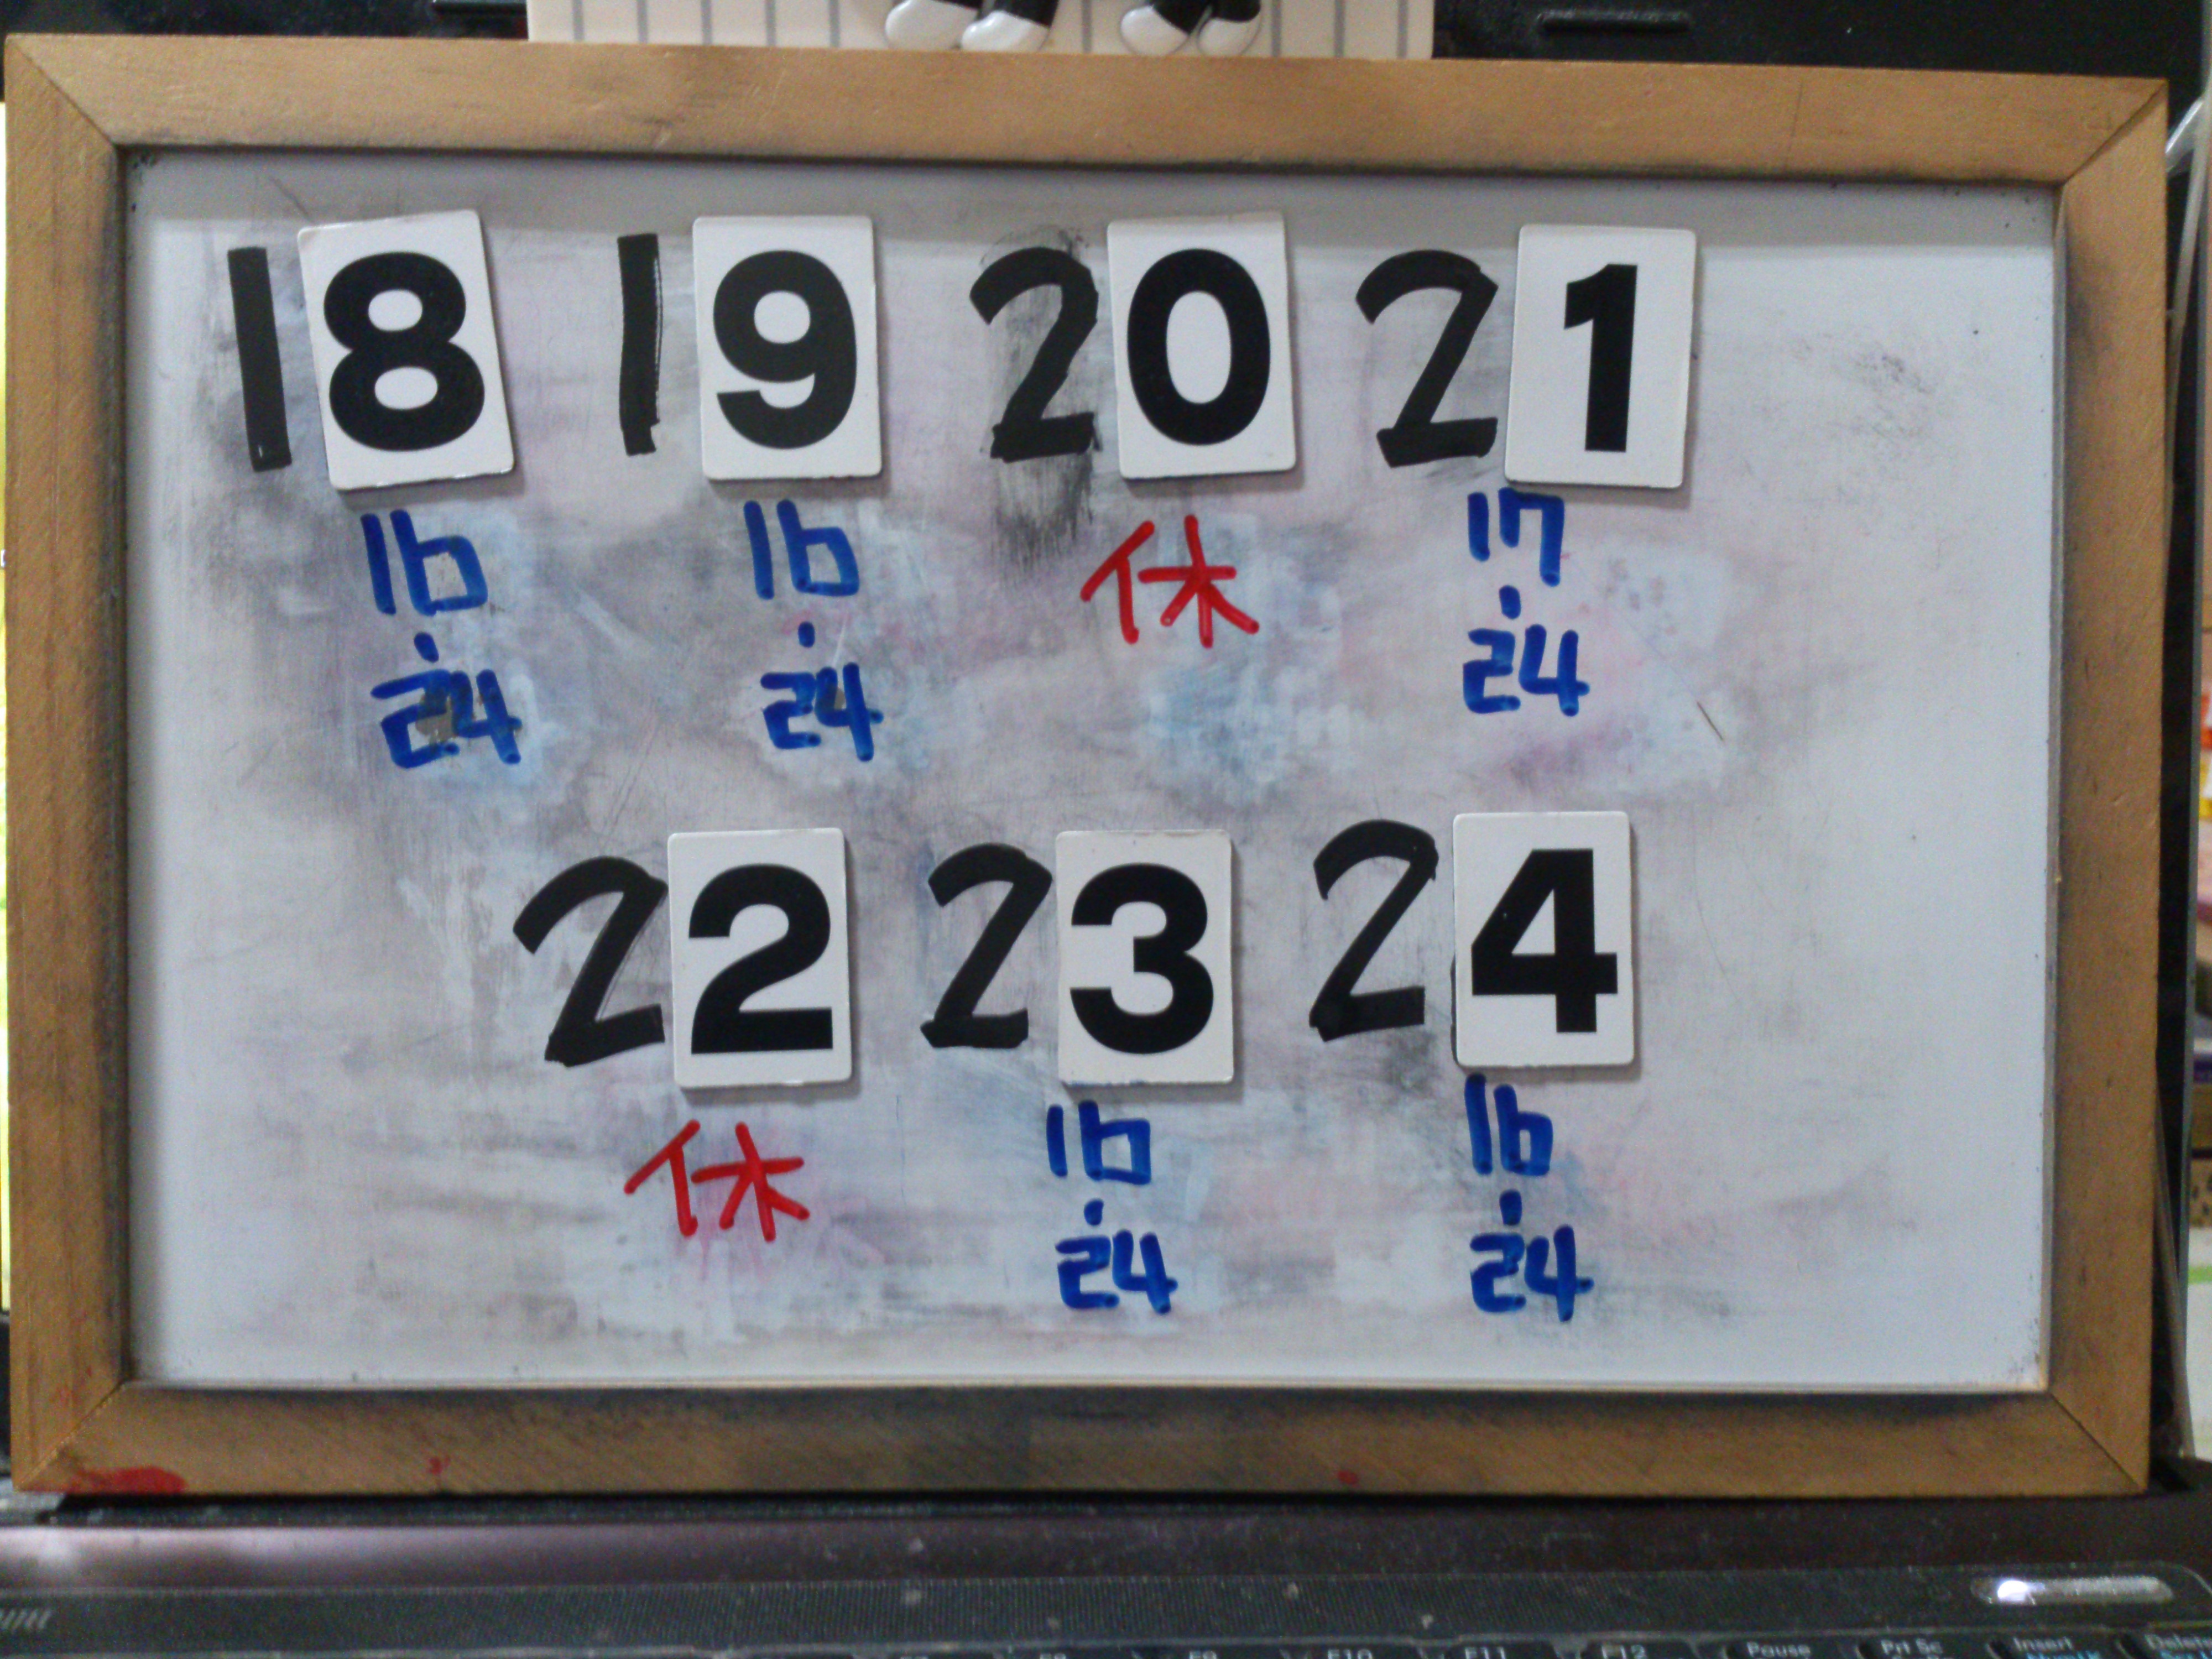 18 19 20 21
16 16 休 17
・ ・ ・
24 24 24
22 23 24
休 16 16
・ ・
24 24
F9 F10 F11 F12 Pause Prt Sc Insert Delete